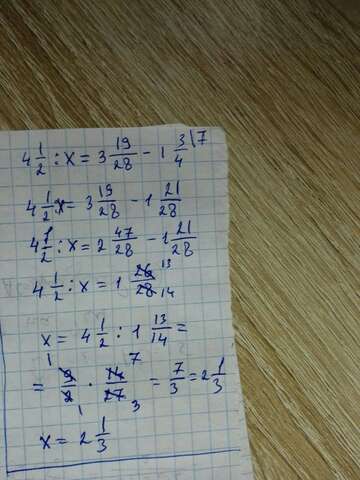 4 1/2 : x = 3 19/28 - 1 3/4 \7
4 1/2 : x = 3 19/28 - 1 21/28
4 1/2 : x = 2 47/28 - 1 21/28
4 1/2 : x = 1 26/28 13 14
x = 4 1/2 : 1 13/14 =
= 1 9/2 1 · 14/27 7 3 = 7/3 = 2 1/3
x = 2 1/3